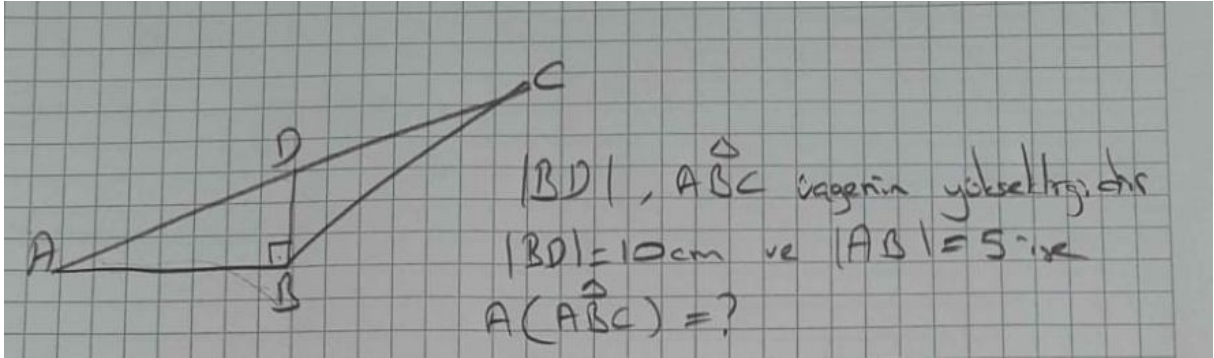 C
D
A
B
|BD|, ABC üçgenin yüksekliğidir
|BD|=10cm ve |AB|=5 ise
A(ABC)=?